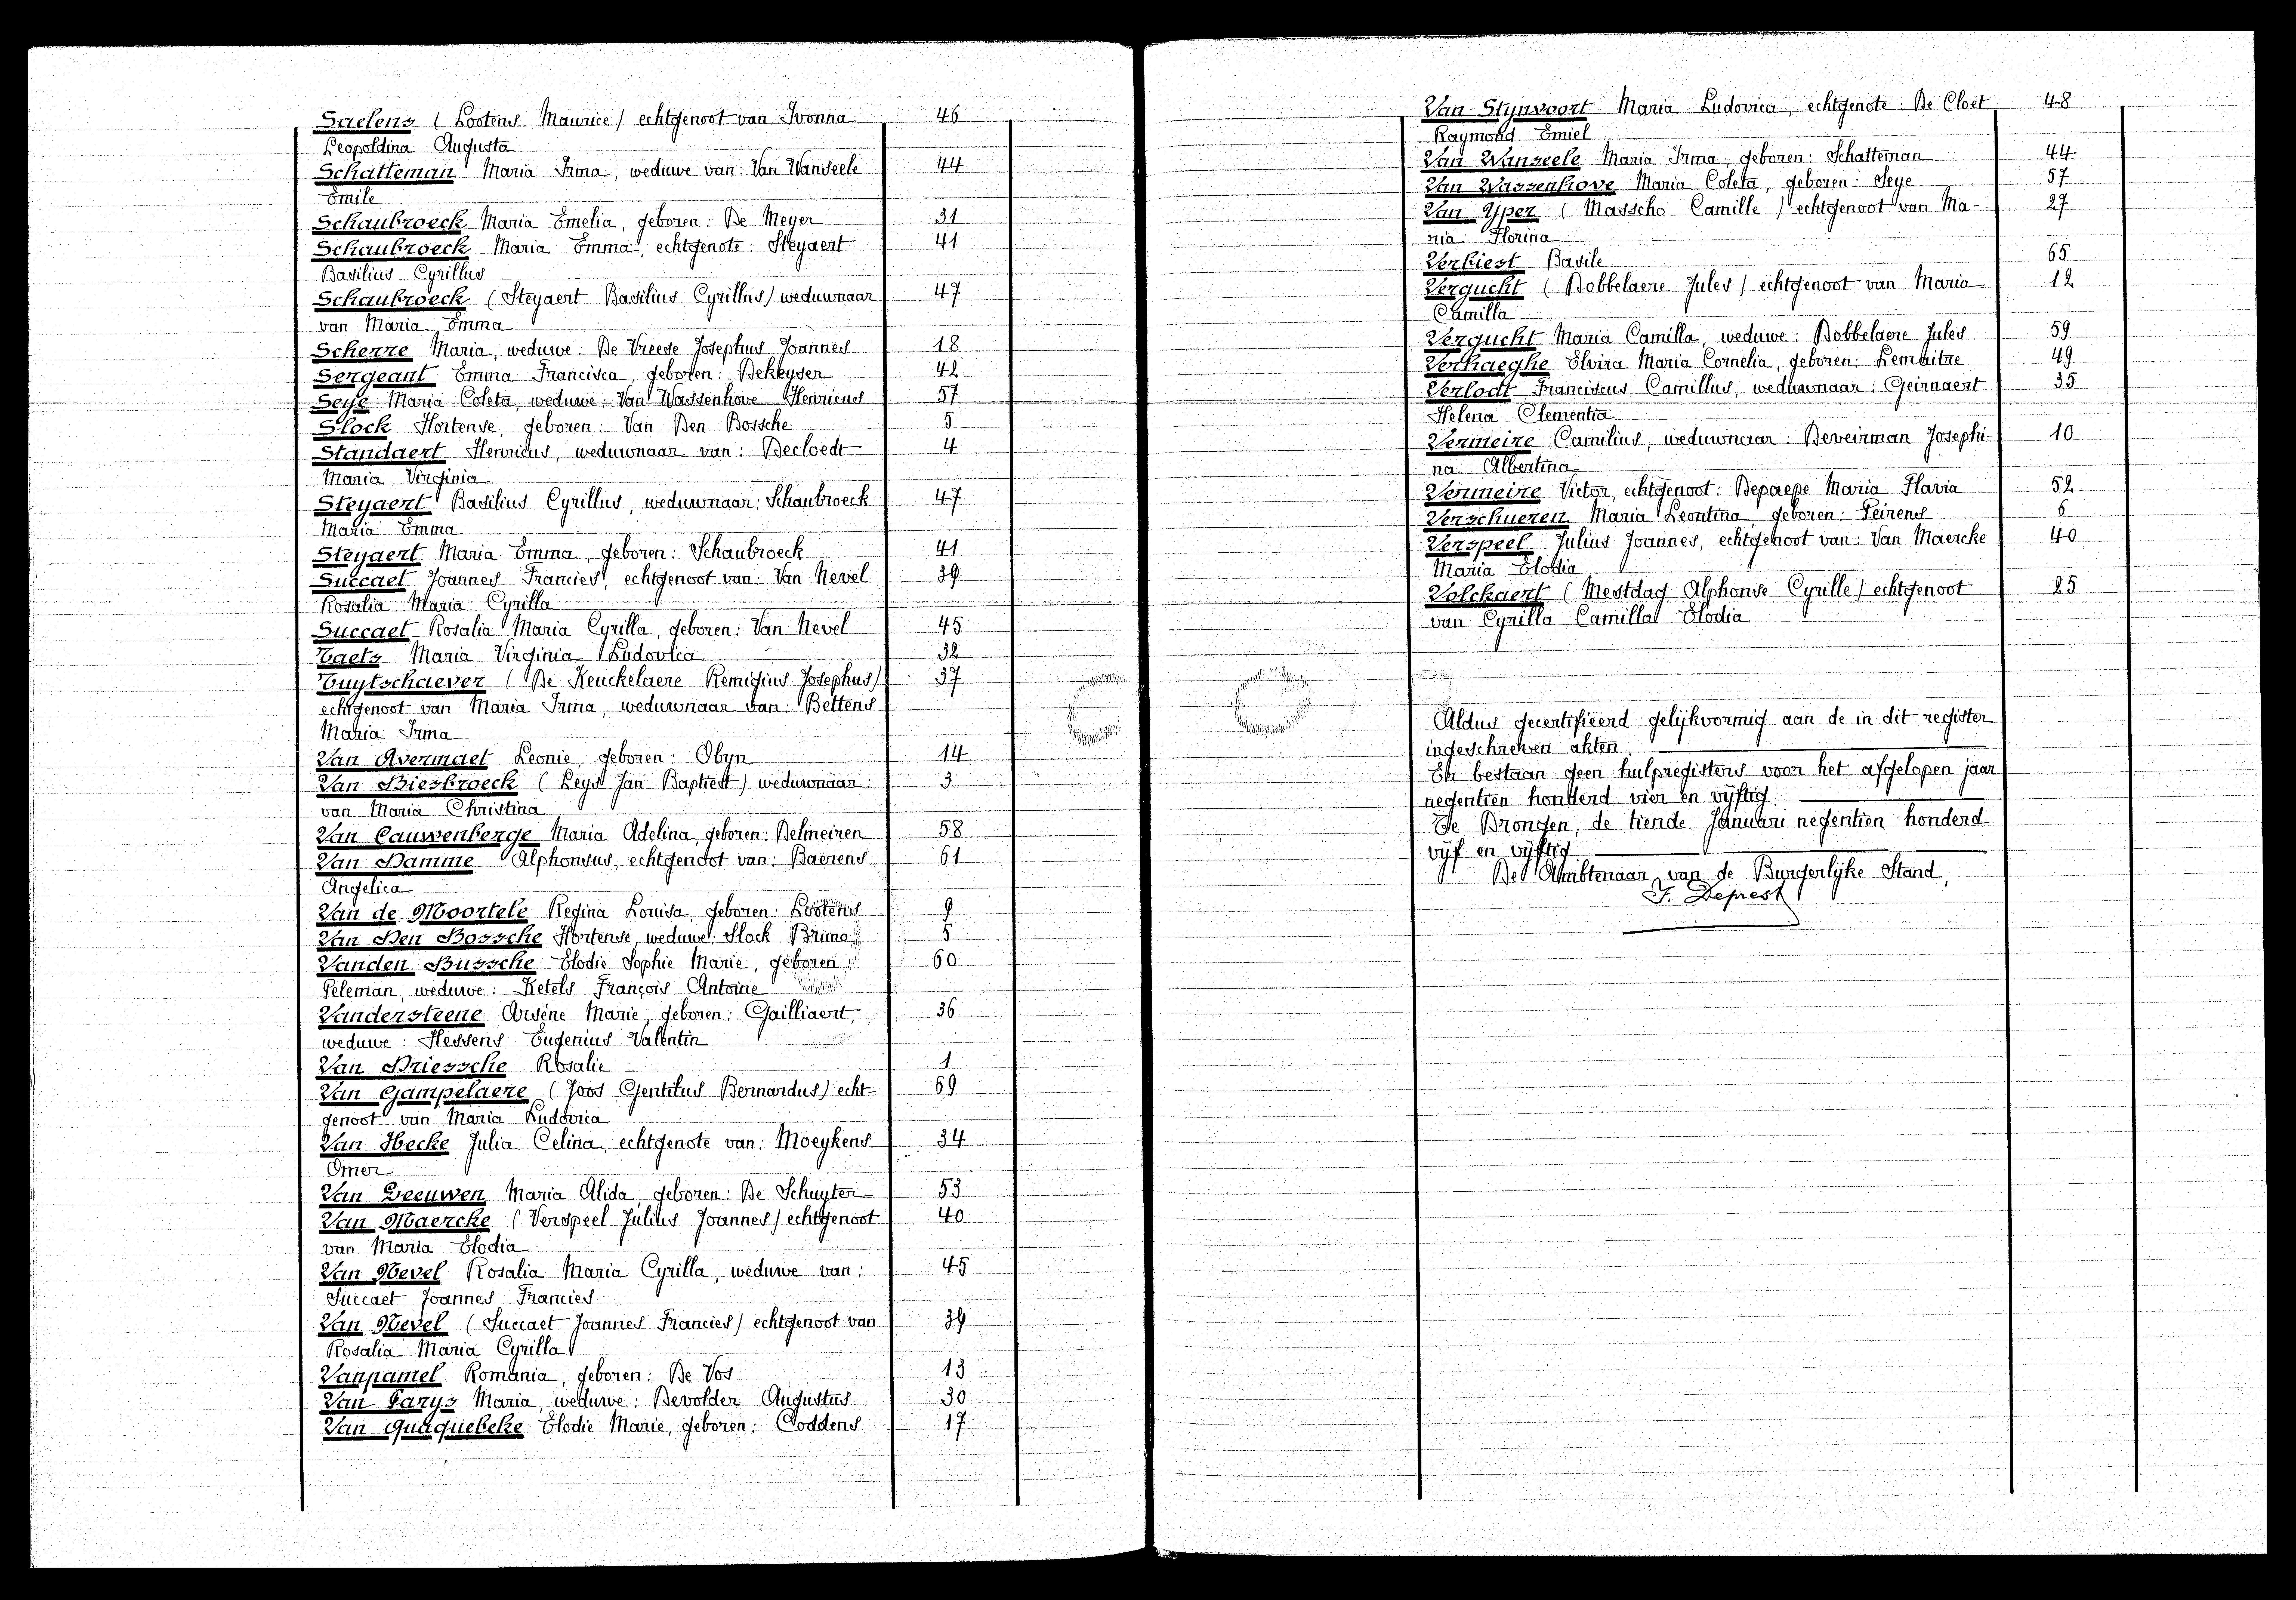 Saelens (Lootens Maurice) echtgenoot van Ivonna 46
Leopoldina Augusta
Schatteman Maria Irma, weduwe van: Van Wanseele 44
Emile
Schaubroeck Maria Emelia, geboren: De Meyer 31
Schaubroeck Maria Emma, echtgenote: Steyaert 41
Basilius Cyrillus
Schaubroeck (Steyaert Basilius Cyrillus) weduwnaar 47
van Maria Emma
Scherre Maria, weduwe: De Vreese Josephus Joannes 18
Sergeant Emma Francisca, geboren: Dekeyser 42
Seye Maria Coleta, weduwe: Van Wassenhove Henricus 57
Slock Hortense, geboren: Van Den Bossche 5
Standaert Henricus, weduwnaar van: Decloedt 4
Maria Virginia
Steyaert Basilius Cyrillus, weduwnaar: Schaubroeck 47
Maria Emma
Steyaert Maria Emma, geboren: Schaubroeck 41
Succaet Joannes Francies, echtgenoot van: Van Nevel 39
Rosalia Maria Cyrilla
Succaet Rosalia Maria Cyrilla, geboren: Van Nevel 45
Taets Maria Virginia Ludovica 32
Tuytschaever (De Keuckelaere Remigius Josephus) 37
echtgenoot van Maria Irma, weduwnaar van: Bettens
Maria Irma
Van Avermaet Leonie, geboren: Obyn 14
Van Biesbroeck (Leys Jan Baptiest) weduwnaar: 3
van Maria Christina
Van Cauwenberge Maria Adelina, geboren: Delmeiren 58
Van Damme Alphonsus, echtgenoot van: Baerens 61
Angelica
Van de Moortele Regina Louisa, geboren: Lootens 9
Van Den Bossche Hortense, weduwe: Slock Bruno 5
Vanden Bussche Elodie Sophie Marie, geboren: 60
Peleman, weduwe: Ketels François Antoine
Vandersteene Arsène Marie, geboren: Gailliaert, 36
weduwe: Hessens Eugenius Valentin
Van Driessche Rosalie 1
Van Gampelaere (Joos Gentilus Bernardus) echt- 69
genoot van Maria Ludovica
Van Hecke Julia Celina, echtgenote van: Moeykens 34
Omer
Van Leeuwen Maria Alida, geboren: De Schuyter 53
Van Maercke (Verspeel Julius Joannes) echtgenoot 40
van Maria Elodia
Van Nevel Rosalia Maria Cyrilla, weduwe van: 45
Succaet Joannes Francies
Van Nevel (Succaet Joannes Francies) echtgenoot van 39
Rosalia Maria Cyrilla
Vanpamel Romania, geboren: De Vos 13
Van Parys Maria, weduwe: Devolder Augustus 30
Van Quaquebeke Elodie Marie, geboren: Coddens 17
Van Stynvoort Maria Ludovica, echtgenote: De Cloet 48
Raymond Emiel
Van Wanseele Maria Irma, geboren: Schatteman 44
Van Wassenhove Maria Coleta, geboren: Seye 57
Van Yper (Masscho Camille) echtgenoot van Ma- 27
ria Florina
Verbiest Basile 65
Vergucht (Dobbelaere Jules) echtgenoot van Maria 12
Camilla
Vergucht Maria Camilla, weduwe: Dobbelaere Jules 59
Verhaeghe Elvira Maria Cornelia, geboren: Lemaitre 49
Verlodt Franciscus Camillus, weduwnaar: Geirnaert 35
Helena Clementia
Vermeire Camilius, weduwnaar: Deveirman Josephi- 10
na Albertina
Vermeire Victor, echtgenoot: Depaepe Maria Flavia 52
Verschueren Maria Leontina, geboren: Peirens 6
Verspeel Julius Joannes, echtgenoot van: Van Maercke 40
Maria Elodia
Volckaert (Mestdag Alphonse Cyrille) echtgenoot 25
van Cyrilla Camilla Elodia
Aldus gecertifieerd gelijkvormig aan de in dit register
ingeschreven akten
Er bestaan geen hulpregisters voor het afgelopen jaar
negentien honderd vier en vijftig
Te Drongen, de tiende Januari negentien honderd
vijf en vijftig
De Ambtenaar van de Burgerlijke Stand,
F. Deprest